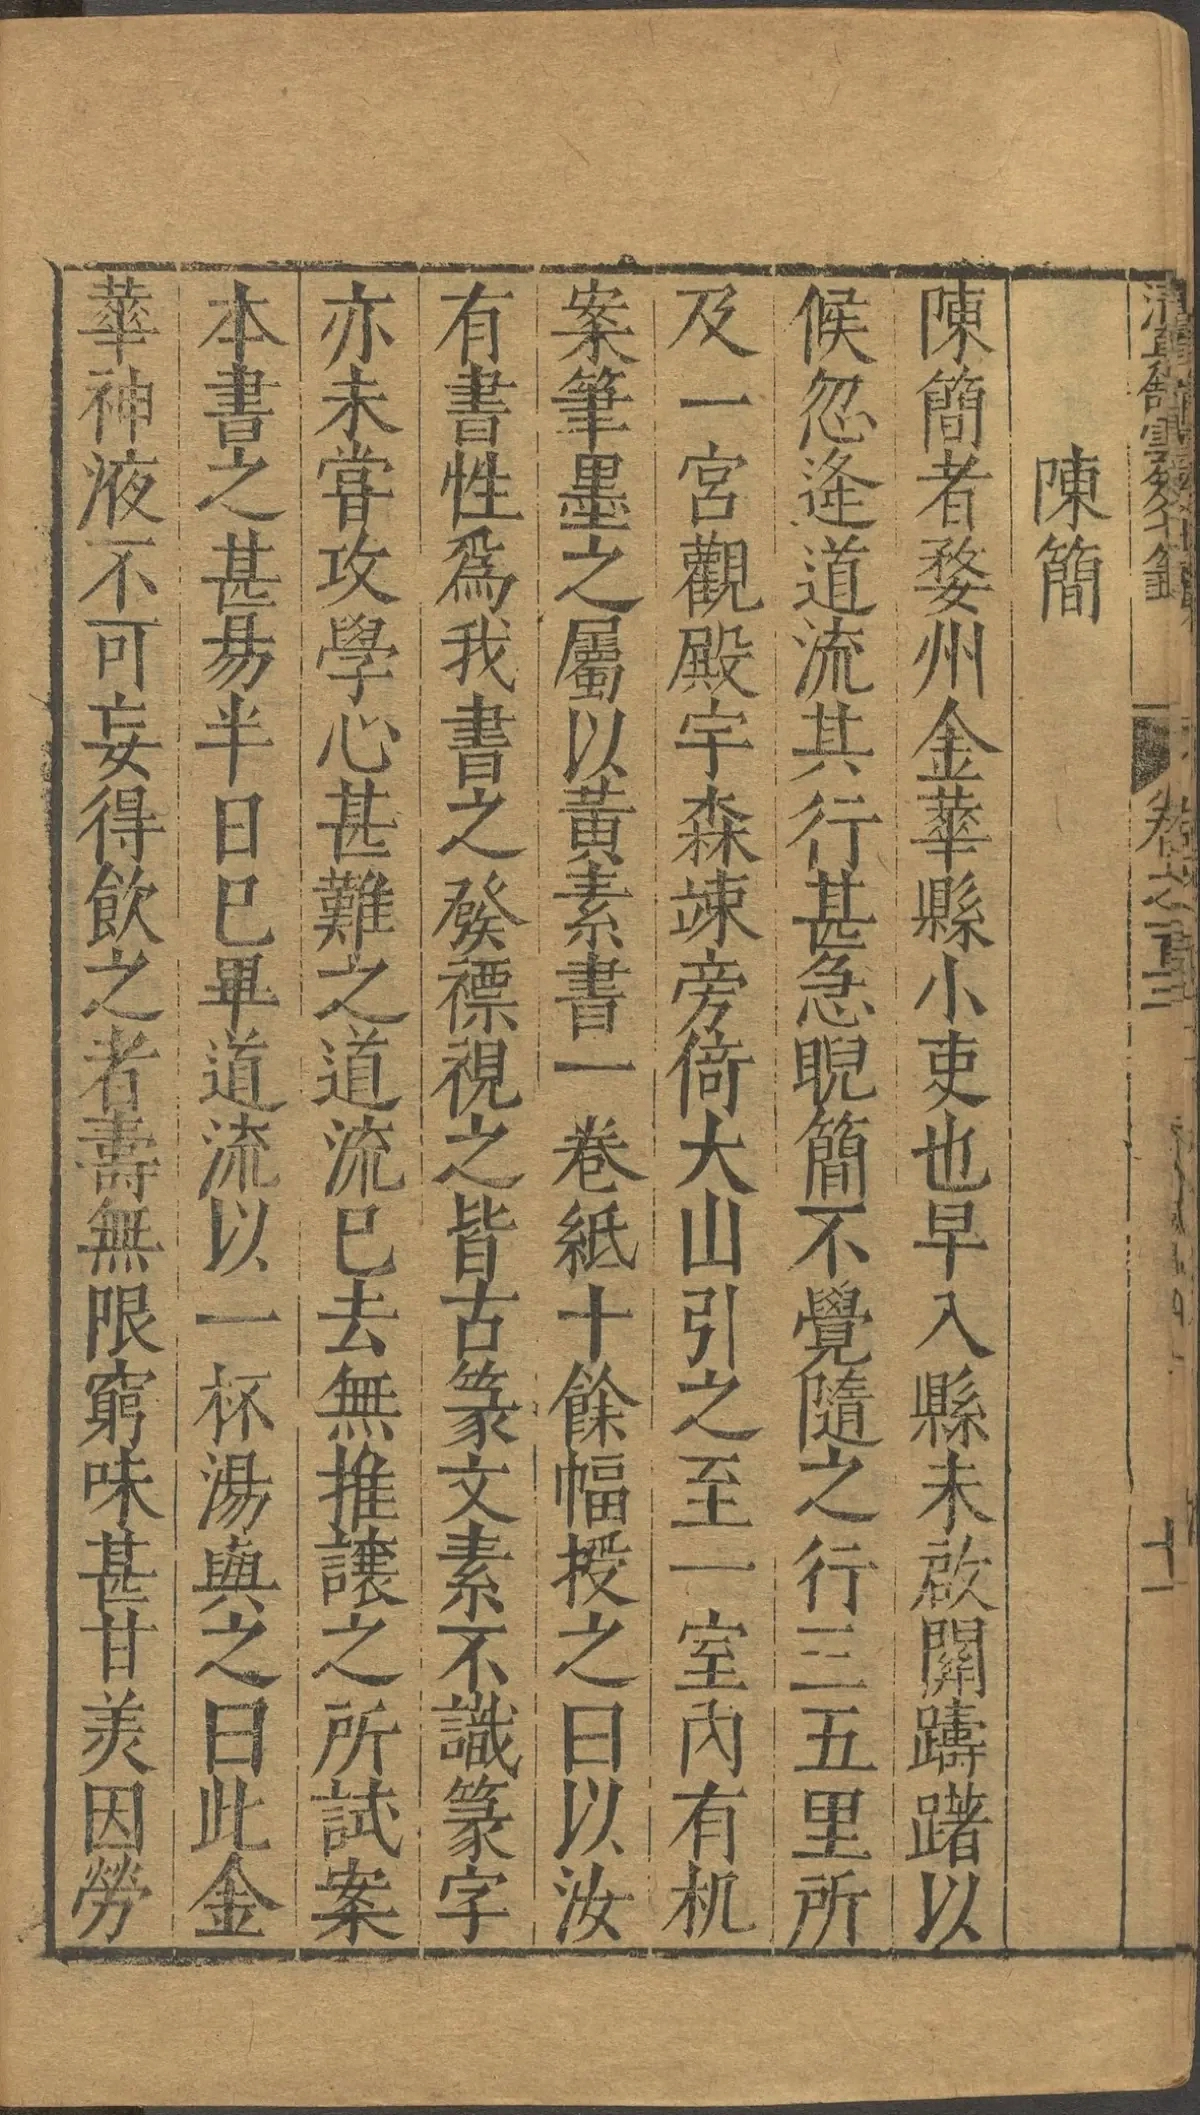 陳簡
陳簡者婺州金華縣小吏也早入縣未啟關躊躇以
候忽逢道流其行甚急睨簡不覺隨之行三五里所
及一宮觀殿宇森竦旁倚大山引之至一室內有机
案筆墨之屬以黃素書一卷紙十餘幅授之曰以汝
有書性爲我書之發褾視之皆古篆文素不識篆字
亦未嘗攻學心甚難之道流已去無推讓之所試案
本書之甚易半日已畢道流以一杯湯與之曰此金
華神液不可妄得飲之者壽無限窮味甚甘美因勞